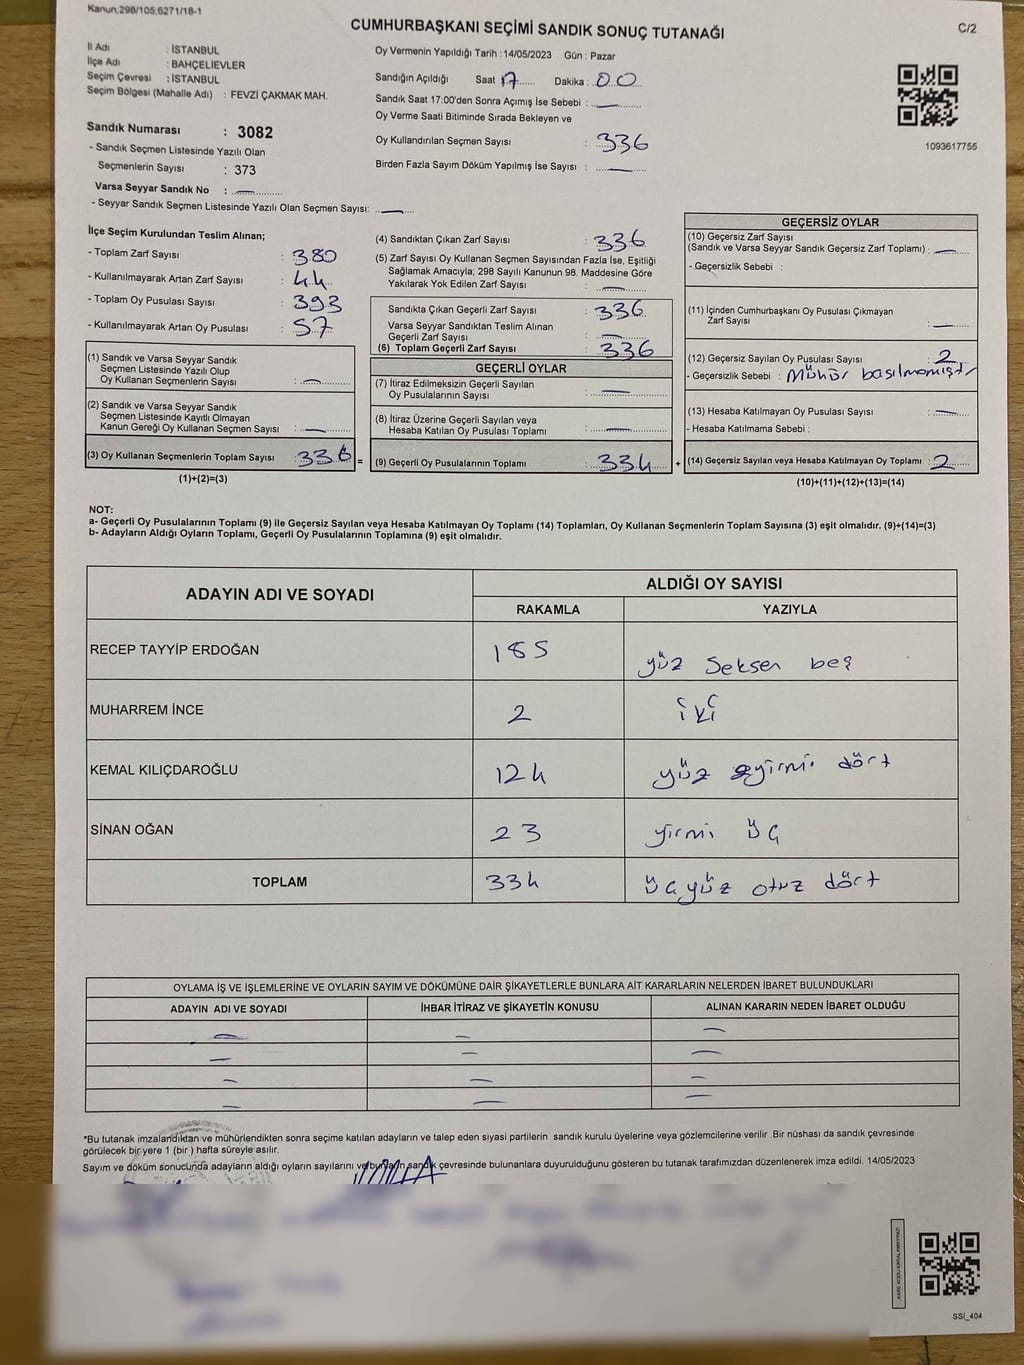 Kanun;298/105;6271/18-1
CUMHURBAŞKANI SEÇİMİ SANDIK SONUÇ TUTANAĞI
C/2
İl Adı : İSTANBUL
İlçe Adı : BAHÇELİEVLER
Seçim Çevresi : İSTANBUL
Seçim Bölgesi (Mahalle Adı) : FEVZİ ÇAKMAK MAH.
Sandık Numarası : 3082
- Sandık Seçmen Listesinde Yazılı Olan
Seçmenlerin Sayısı : 373
Varsa Seyyar Sandık No : —
- Seyyar Sandık Seçmen Listesinde Yazılı Olan Seçmen Sayısı: —
Oy Vermenin Yapıldığı Tarih : 14/05/2023 Gün : Pazar
Sandığın Açıldığı Saat 17 Dakika : 00
Sandık Saat 17:00'den Sonra Açımış İse Sebebi : —
Oy Verme Saati Bitiminde Sırada Bekleyen ve
Oy Kullandırılan Seçmen Sayısı : 336
Birden Fazla Sayım Döküm Yapılmış İse Sayısı : —
1093617755
İlçe Seçim Kurulundan Teslim Alınan;
- Toplam Zarf Sayısı : 380
- Kullanılmayarak Artan Zarf Sayısı : 44
- Toplam Oy Pusulası Sayısı : 393
- Kullanılmayarak Artan Oy Pusulası : 57
(1) Sandık ve Varsa Seyyar Sandık
Seçmen Listesinde Yazılı Olup
Oy Kullanan Seçmenlerin Sayısı : —
(2) Sandık ve Varsa Seyyar Sandık
Seçmen Listesinde Kayıtlı Olmayan
Kanun Gereği Oy Kullanan Seçmen Sayısı : —
(3) Oy Kullanan Seçmenlerin Toplam Sayısı : 336 =
(1)+(2)=(3)
(4) Sandıktan Çıkan Zarf Sayısı : 336
(5) Zarf Sayısı Oy Kullanan Seçmen Sayısından Fazla İse, Eşitliği
Sağlamak Amacıyla; 298 Sayılı Kanunun 98. Maddesine Göre
Yakılarak Yok Edilen Zarf Sayısı : —
Sandıkta Çıkan Geçerli Zarf Sayısı : 336
Varsa Seyyar Sandıktan Teslim Alınan
Geçerli Zarf Sayısı : —
(6) Toplam Geçerli Zarf Sayısı : 336
GEÇERLİ OYLAR
(7) İtiraz Edilmeksizin Geçerli Sayılan
Oy Pusulalarının Sayısı : —
(8) İtiraz Üzerine Geçerli Sayılan veya
Hesaba Katılan Oy Pusulası Toplamı : —
(9) Geçerli Oy Pusulalarının Toplamı : 334 +
GEÇERSİZ OYLAR
(10) Geçersiz Zarf Sayısı
(Sandık ve Varsa Seyyar Sandık Geçersiz Zarf Toplamı) : —
- Geçersizlik Sebebi :
(11) İçinden Cumhurbaşkanı Oy Pusulası Çıkmayan
Zarf Sayısı : —
(12) Geçersiz Sayılan Oy Pusulası Sayısı : 2
- Geçersizlik Sebebi : Mühür basılmamıştır
(13) Hesaba Katılmayan Oy Pusulası Sayısı : —
- Hesaba Katılmama Sebebi :
(14) Geçersiz Sayılan veya Hesaba Katılmayan Oy Toplamı : 2
(10)+(11)+(12)+(13)=(14)
NOT:
a- Geçerli Oy Pusulalarının Toplamı (9) ile Geçersiz Sayılan veya Hesaba Katılmayan Oy Toplamı (14) Toplamları, Oy Kullanan Seçmenlerin Toplam Sayısına (3) eşit olmalıdır. (9)+(14)=(3)
b- Adayların Aldığı Oyların Toplamı, Geçerli Oy Pusulalarının Toplamına (9) eşit olmalıdır.
ADAYIN ADI VE SOYADI ALDIĞI OY SAYISI
RAKAMLA YAZIYLA
RECEP TAYYİP ERDOĞAN 185 yüz seksen beş
MUHARREM İNCE 2 iki
KEMAL KILIÇDAROĞLU 124 yüz yirmi dört
SİNAN OĞAN 23 yirmi üç
TOPLAM 334 üçyüz otuz dört
OYLAMA İŞ VE İŞLEMLERİNE VE OYLARIN SAYIM VE DÖKÜMÜNE DAİR ŞİKAYETLERLE BUNLARA AİT KARARLARIN NELERDEN İBARET BULUNDUKLARI
ADAYIN ADI VE SOYADI İHBAR İTİRAZ VE ŞİKAYETİN KONUSU ALINAN KARARIN NEDEN İBARET OLDUĞU
— — —
— — —
— — —
— — —
*Bu tutanak imzalandıktan ve mühürlendikten sonra seçime katılan adayların ve talep eden siyasi partilerin sandık kurulu üyelerine veya gözlemcilerine verilir .Bir nüshası da sandık çevresinde
görülecek bir yere 1 (bir ) hafta süreyle asılır.
Sayım ve döküm sonucunda adayların aldığı oyların sayılarını ve bunların sandık çevresinde bulunanlara duyurulduğunu gösteren bu tutanak tarafımızdan düzenlenerek imza edildi. 14/05/2023
KARE KODU KARALAMAYINIZ!
SSI_404